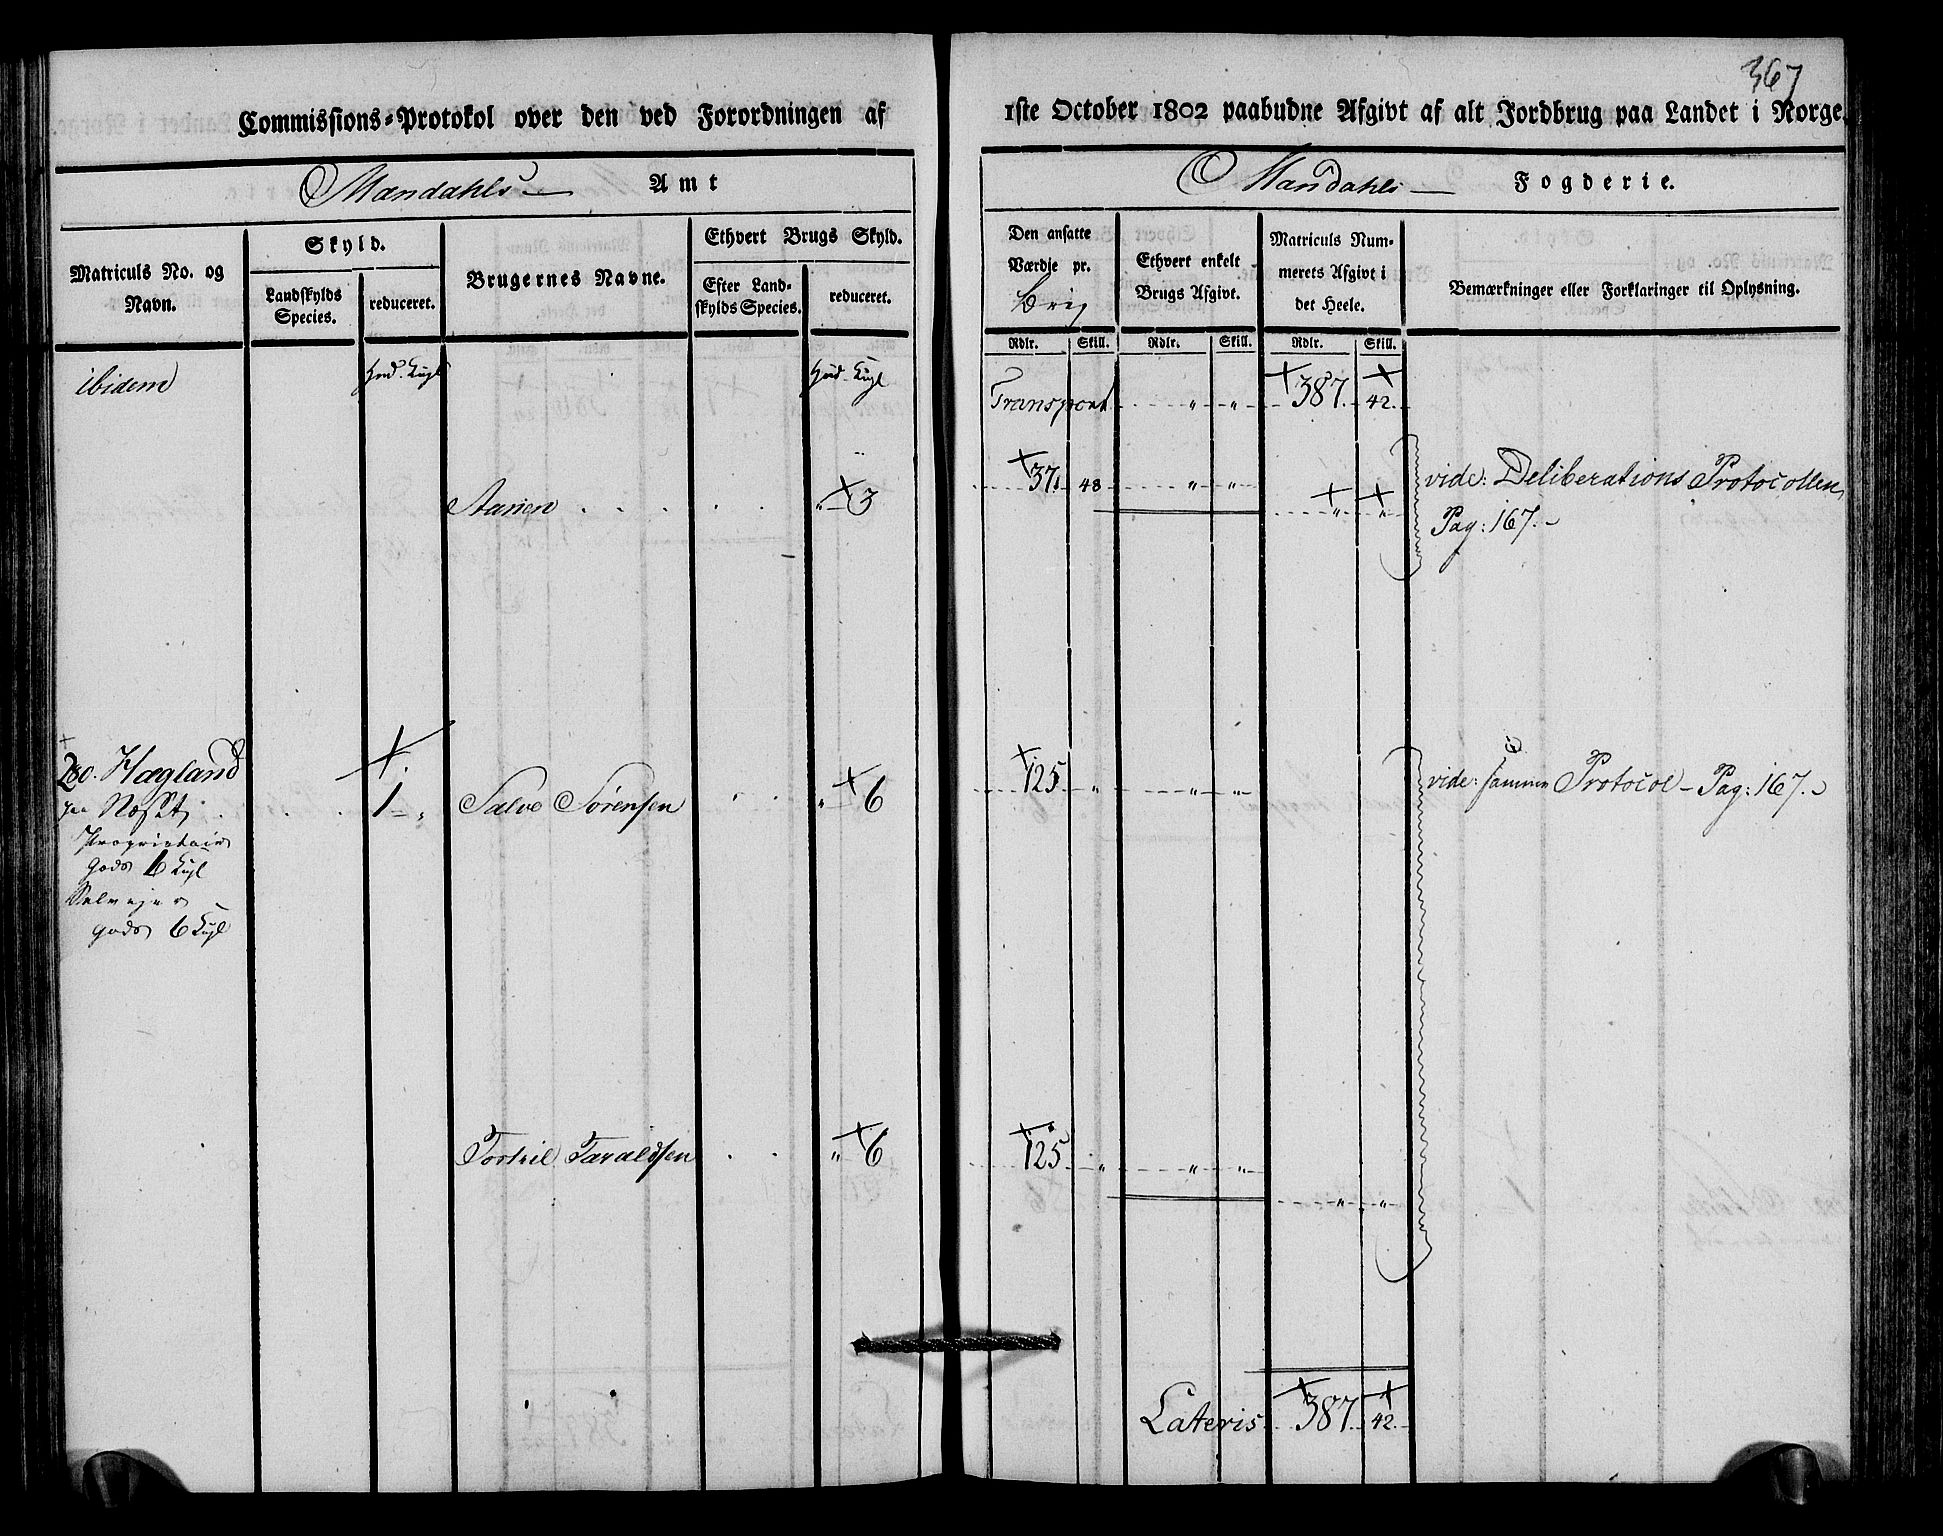 367
Commissions-Protokol over den ved Forordningen af 1ste October 1802 paabudne Afgivt af alt Jordbrug paa Landet i Norge.
Mandahls Amt
Mandahls Fogderie.
Matriculs No. og Navn.
Skyld.
Landskylds Species.
reduceret.
Brugernes Navne.
Ethvert Brugs Skyld.
Efter Landskylds Species.
reduceret.
Den ansatte Værdie pr.
Ethvert enkelt Brugs Afgivt.
Matriculs Nummerets Afgivt i det Heele.
Bemærkninger eller Forklaringer til Oplysning.
Rdlr. Skill. Rdlr. Skill. Rdlr. Skill.
ibidem
Hud. Kugl
Hud. Kugl
Transport " " 387. 42.
Aanen " 3 37. 48 " " " "
vide: Deliberations Protocollen
Pag: 167.
280. Hægland 1 " Salve Sørensen " 6 125 " " "
vide: samme Protocol - Pag: 167.
Proprietair
Gods 6 Kugl
Selveier
gods 6 Kugl
Torkil Taraldsen " 6 125 " " "
" "
Lateris 387. 42.